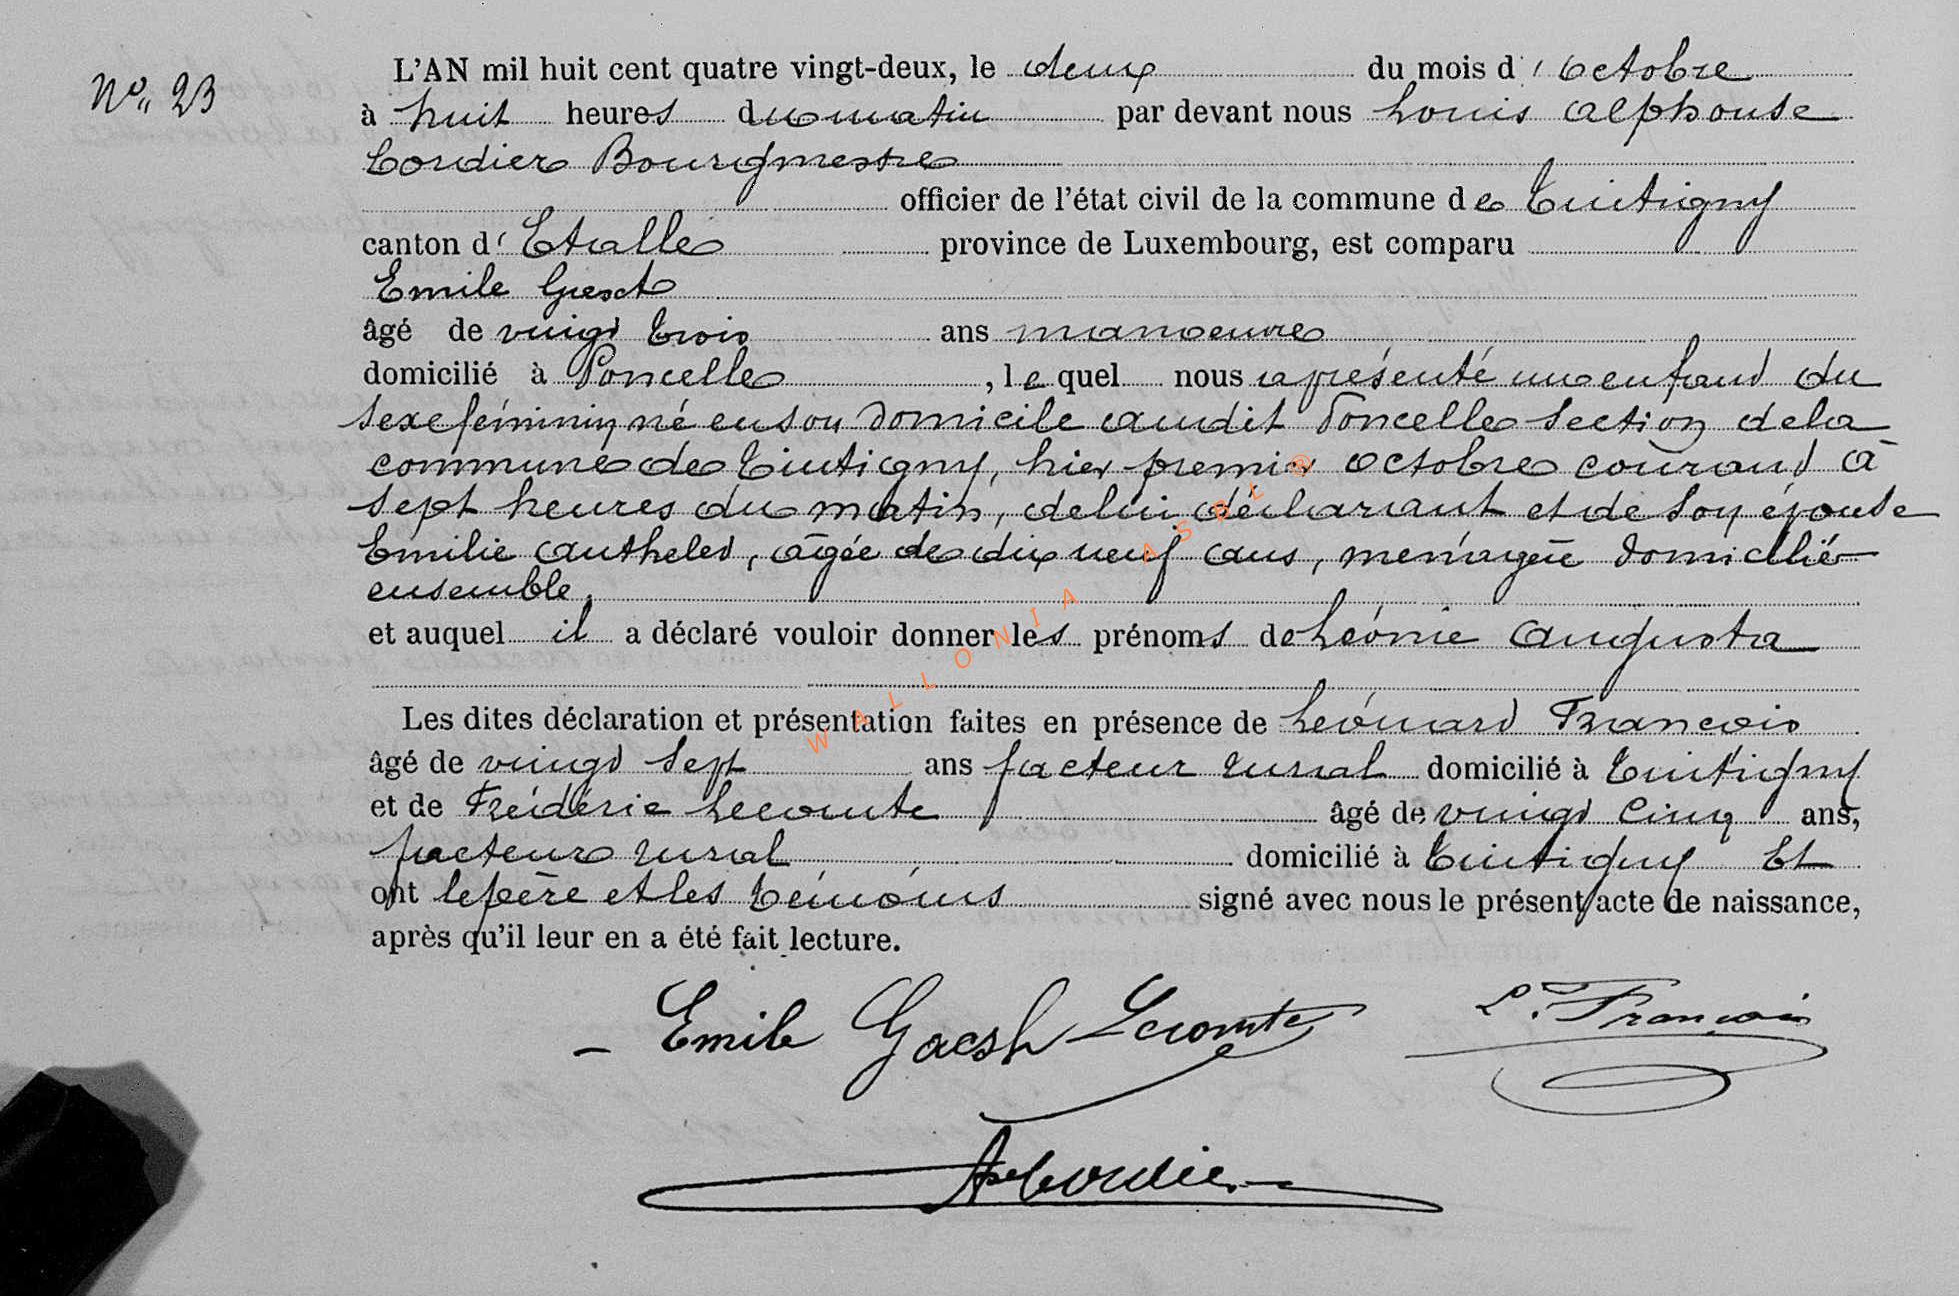 No. 23
L'AN mil huit cent quatre vingt-deux, le deux du mois d'octobre
à huit heures du matin par devant nous Louis Alphonse
Cordier Bourgmestre
officier de l'état civil de la commune de Tintigny
canton d'Etalle province de Luxembourg, est comparu
Emile
âgé de vingt trois ans manoeuvre
domicilié à Poncelle, lequel nous a présenté un enfant du
sexe féminin né en son domicile audit Poncelle section de la
commune de Tintigny, hier premier octobre courant à
sept heures du matin, de lui déclarant et de son épouse
Emilie, âgée de dix neuf ans, ménagère domicilié
ensemble,
et auquel il a déclaré vouloir donner les prénoms de Léonie Augusta
Les dites déclaration et présentation faites en présence de Léonard François
âgé de vingt sept ans facteur rural domicilié à Tintigny
et de Fréderic Lecomte âgé de vingt cinq ans,
facteur rural domicilié à Tintigny Et
ont le père et les témoins signé avec nous le présent acte de naissance,
après qu'il leur en a été fait lecture.
Emile Lecomte L. François
Cordier
WALLONIA ASBL ®